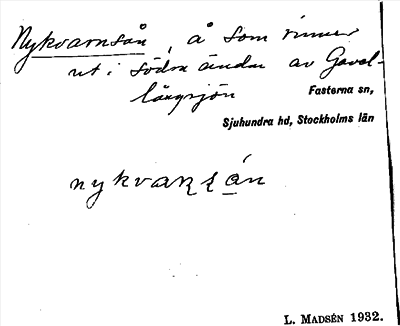 Nykvarnsån, å som rinner
ut i södra ändan av Gavel-
långsjön
Fasterna sn,
Sjuhundra hd, Stockholms län
nykvaṇṣá̲n
L. MADSÉN 1932.